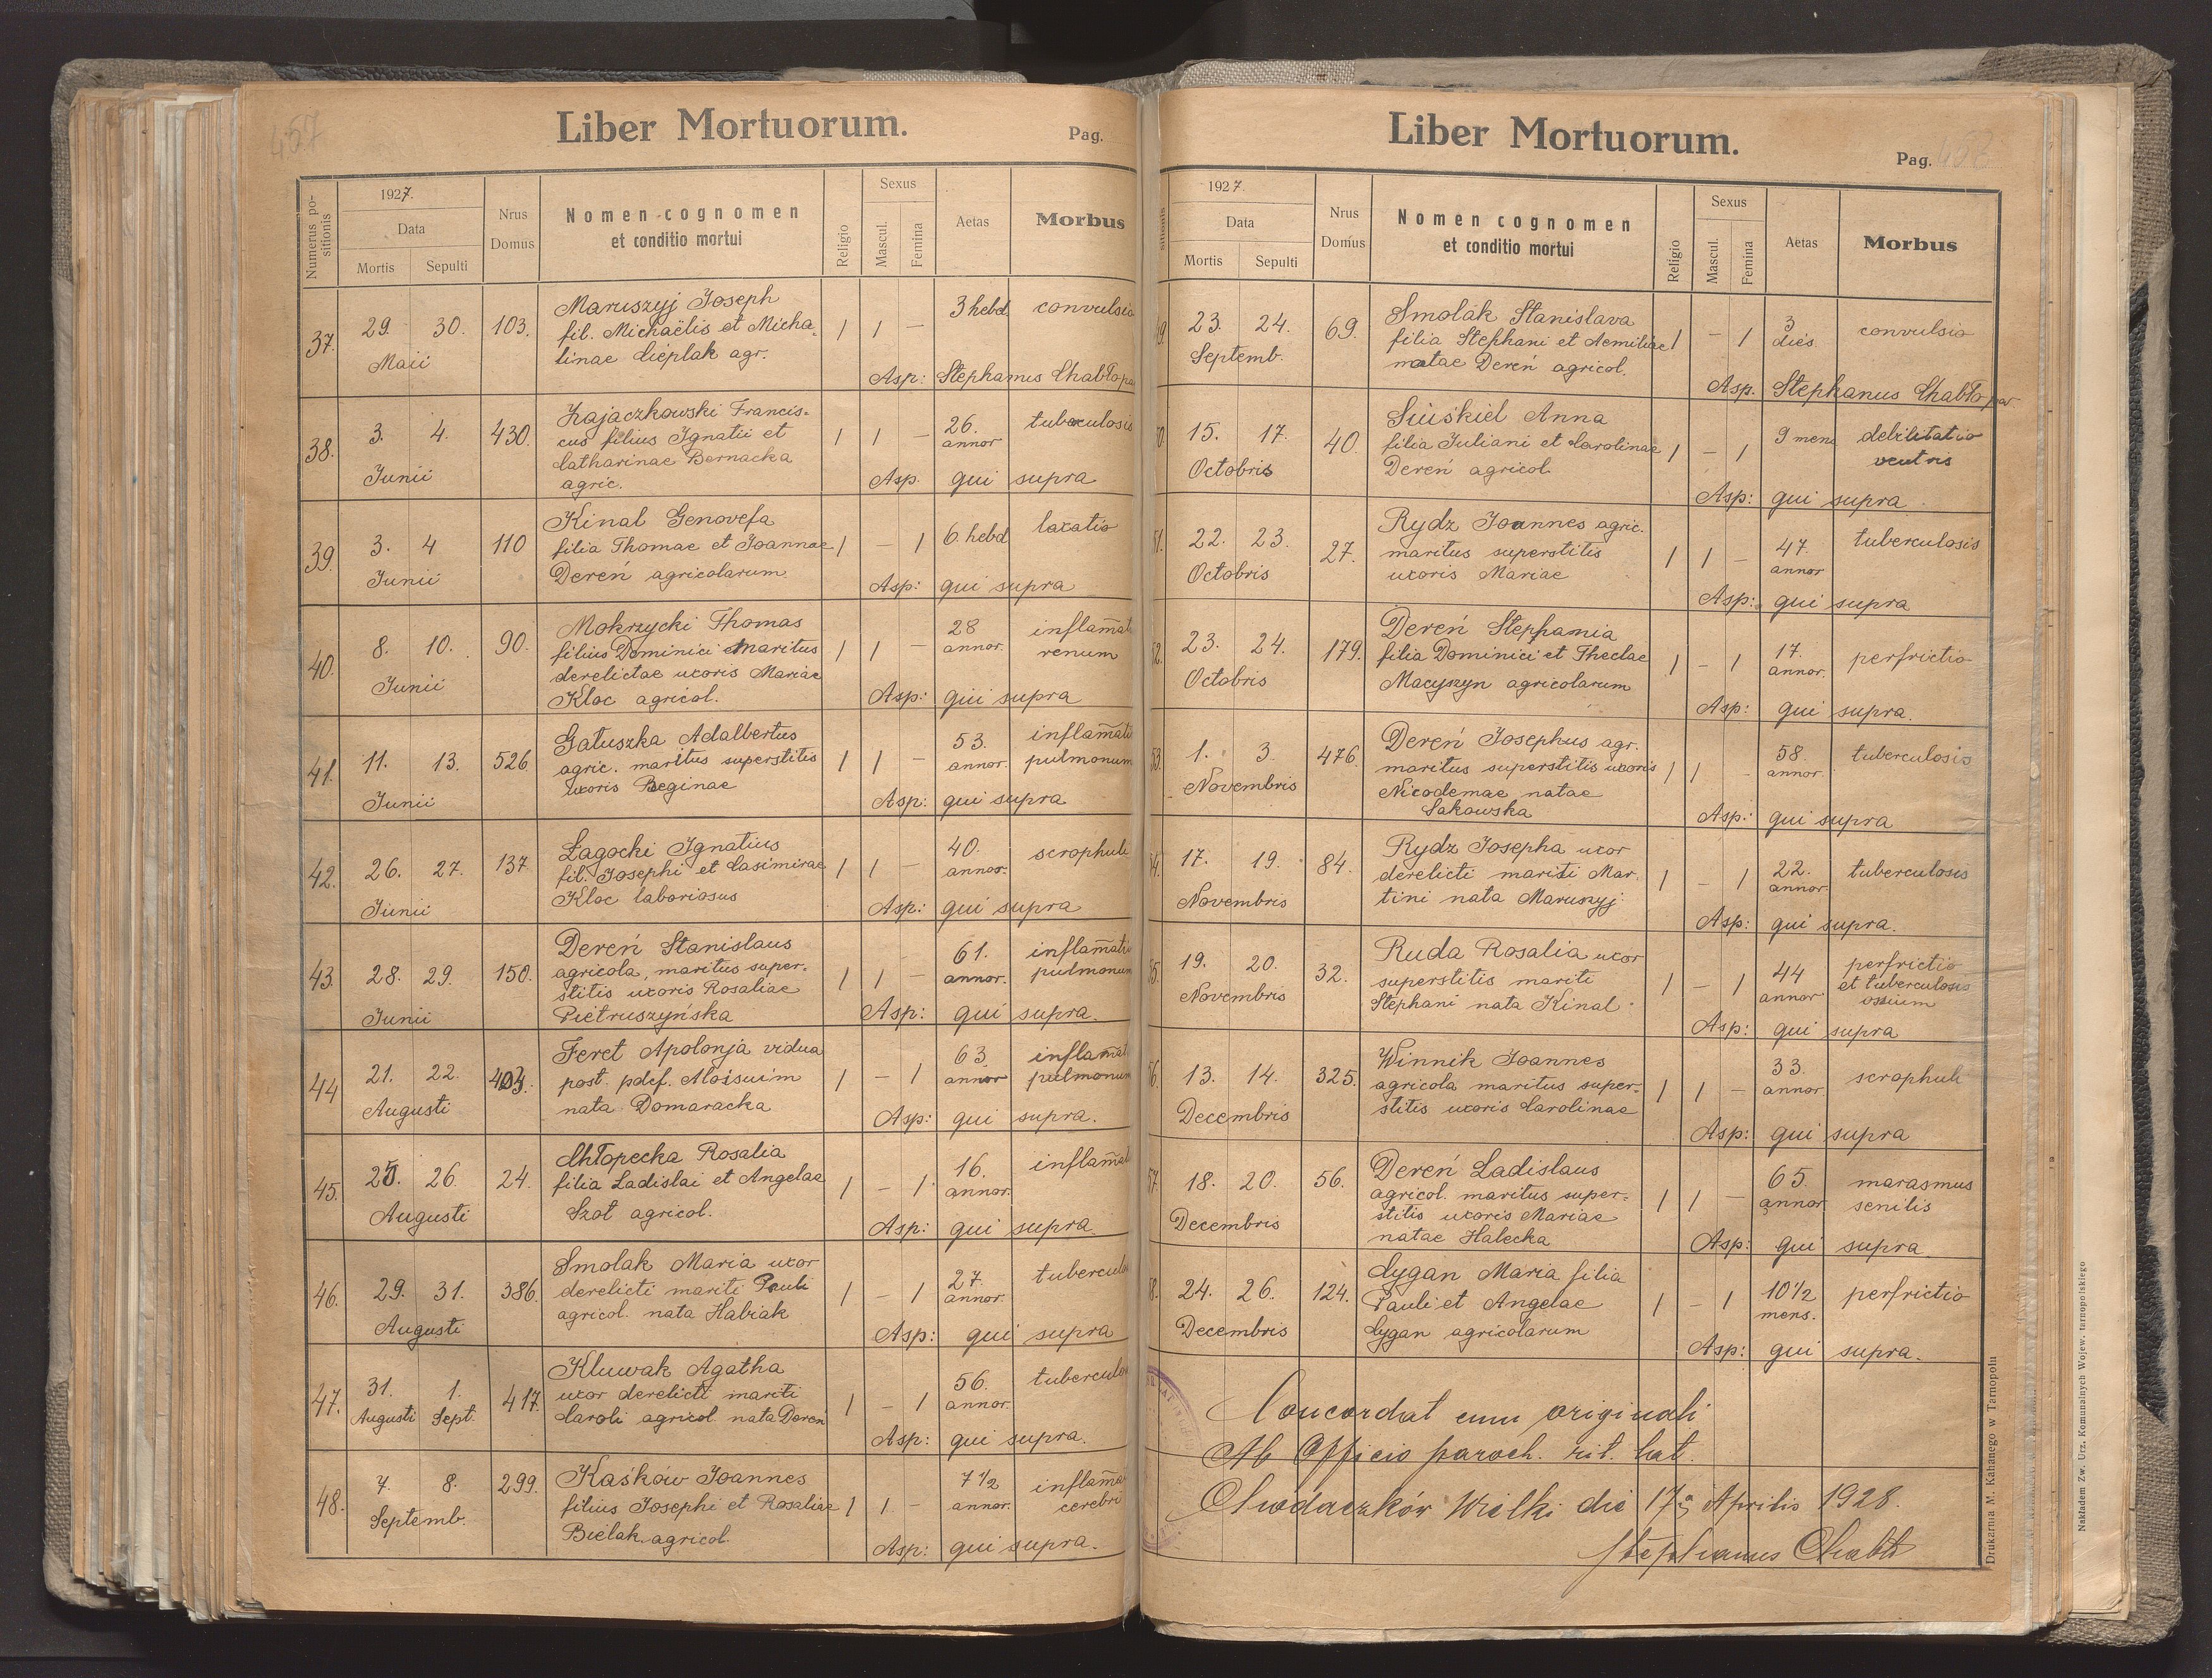 457
Liber Mortuorum.
Pag.
Numerus positionis
1927.
Data
Mortis Sepulti
Nrus Domus
Nomen cognomen
et conditio mortui
Religio
Sexus
Mascul. Femina
Aetas
Morbus
37. 29. 30. 103. Maruszyj Joseph 1 1 – 3 hebd convulsio
Maii fil. Michaëlis et Micha-
linae Cieplak agr.
Asp: Stephanus Chabło par
38. 3. 4. 430. Zajączkowski Francis-
Junii cus filius Ignatii et 1 1 – 26. annor tuberculosis
Catharinae Bernacka
agric. Asp. qui supra
39. 3. 4 110 Kinal Genovefa
Junii filia Thomae et Joannae 1 – 1 6. hebd laxatio
Dereń agricolarum. Asp: qui supra
40. 8. 10. 90. Mokrzycki Thomas
Junii filius Dominici maritus 1 1 – 28 annor. inflam̄at
derelictae uxoris Mariae renum
Kloc agricol. Asp: qui supra
41. 11. 13. 526. Gałuszka Adalbertus
Junii agric. maritus superstitis 1 1 – 53. annor. inflam̄ati
uxoris Reginae pulmonum
Asp: qui supra
42. 26. 27. 137. Łagocki Ignatius
Junii fil. Josephi et Casimirae 1 1 – 40. annor. scrophuli
Kloc laboriosus
Asp: qui supra
43. 28. 29. 150. Dereń Stanislaus
Junii agricola, maritus super- 1 1 – 61. annor. inflam̄atio
stitis uxoris Rosaliae pulmonum
Pietruszyńska Asp: qui supra.
44 21. 22. 403. Feret Apolonja vidua
Augusti post pdef. Aloisuim 1 – 1 63 annor inflam̄at
nata Domaracka pulmonum
Asp: qui supra.
45. 25. 26. 24. Chłopecka Rosalia
Augusti filia Ladislai et Angelae 1 – 1 16. annor. inflam̄at
Szot agricol.
Asp: qui supra.
46. 29. 31. 386. Smolak Maria uxor
Augusti derelicti mariti Pauli 1 – 1 27. annor. tubercul
agricol. nata Habiak
Asp: qui supra
47. 31. 1. 417. Kluwak Agatha
Augusti Sept. uxor derelicti mariti 1 – 1 56. annor. tuberculo
Caroli agricol. nata Dereń
Asp: qui supra.
48. 7. 8. 299. Kaśków Joannes
Septemb. filius Josephi et Rosaliae 1 1 – 7 1/2 annor. inflam̄a
Bielak agricol. cerebri
Asp: qui supra.
Liber Mortuorum.
Pag. 458
sitionis
1927.
Data
Mortis Sepulti
Nrus Domus
Nomen cognomen
et conditio mortui
Religio
Sexus
Mascul. Femina
Aetas
Morbus
9. 23. 24. 69. Smolak Stanislava
Septemb. filia Stephani et Aemiliae 1 – 1 3 dies convulsio
natae Dereń agricol.
Asp. Stephanus Chabło par
0. 15. 17. 40. Siuśkiel Anna
Octobris filia Juliani et Carolinae 1 – 1 9 mens debilitatio
Dereń agricol. ventris
Asp: qui supra
51. 22. 23. 27. Rydz Joannes agric.
Octobris maritus superstitis 1 1 – 47. annor tuberculosis
uxoris Mariae
Asp: qui supra
52. 23. 24. 179. Dereń Stephania
Octobris filia Dominici et Theclae 1 – 1 17. annor. perfrictio
Macyszyn agricolarum
Asp: qui supra.
53. 1. 3 476. Dereń Josephus agr.
Novembris maritus superstitis uxoris 1 1 – 58. annor. tuberculosis
Nicodemae natae
Sakowska Asp: qui supra
54. 17. 19. 84. Rydz Josepha uxor
Novembris derelicti mariti Mar- 1 – 1 22. annor. tuberculosis
tini nata Maruszyj
Asp: qui supra.
55. 19. 20. 32. Ruda Rosalia uxor
Novembris superstitis mariti 1 – 1 44 annor perfrictio
Stephani nata Kinal et tuberculosis
ossium
Asp: qui supra
56. 13. 14. 325. Winnik Joannes
Decembris agricola maritus super- 1 1 – 33. annor. scrophuli
stitis uxoris Carolinae
Asp: qui supra
57. 18. 20. 56. Dereń Ladislaus
Decembris agricol. maritus super- 1 1 – 65. annor marasmus
stitis uxoris Mariae senilis
natae Halecka Asp: qui supra
58. 24. 26. 124. Cygan Maria filia
Decembris Pauli et Angelae 1 – 1 10 1/2 mens. perfrictio
Cygan agricolarum
Asp: qui supra.
Concordat cum originali
Ab Officio paroch. rit. lat.
Chodaczków Wielki die 17a Aprilis 1928.
Stephanus Chabło
Drukarnia M. Kahanego w Tarnopolu
Nakładem Zw. Urz. Komunalnych Wojew. tarnopolskiego